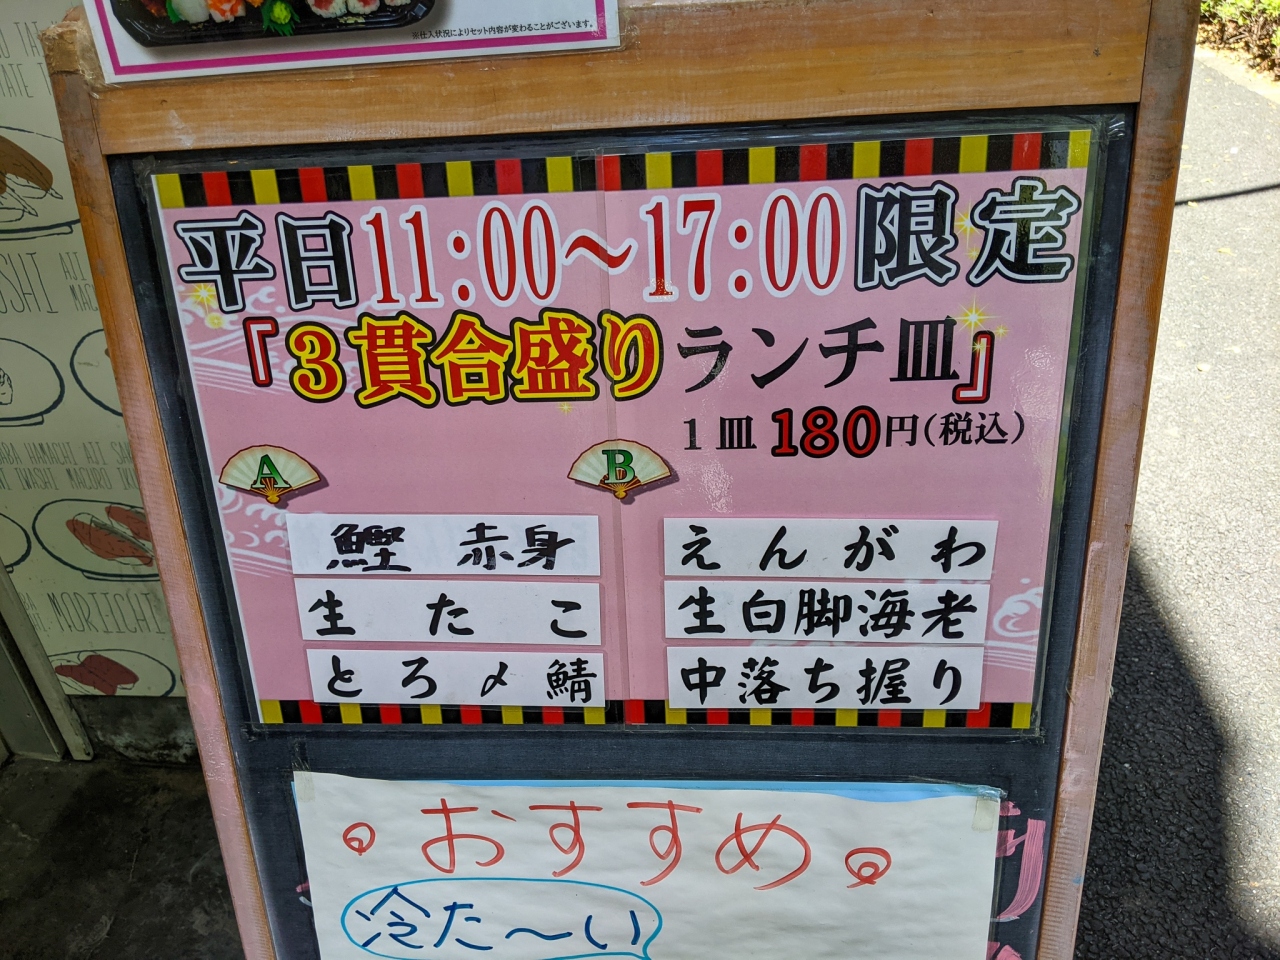 ※仕入状況によりセット内容が変わることがございます。
平日11:00〜17:00限定
『3貫合盛りランチ皿』
1皿180円(税込)
A
鰹 赤身
生たこ
とろ〆鯖
B
えんがわ
生白脚海老
中落ち握り
おすすめ
冷た〜い
MORIICHI